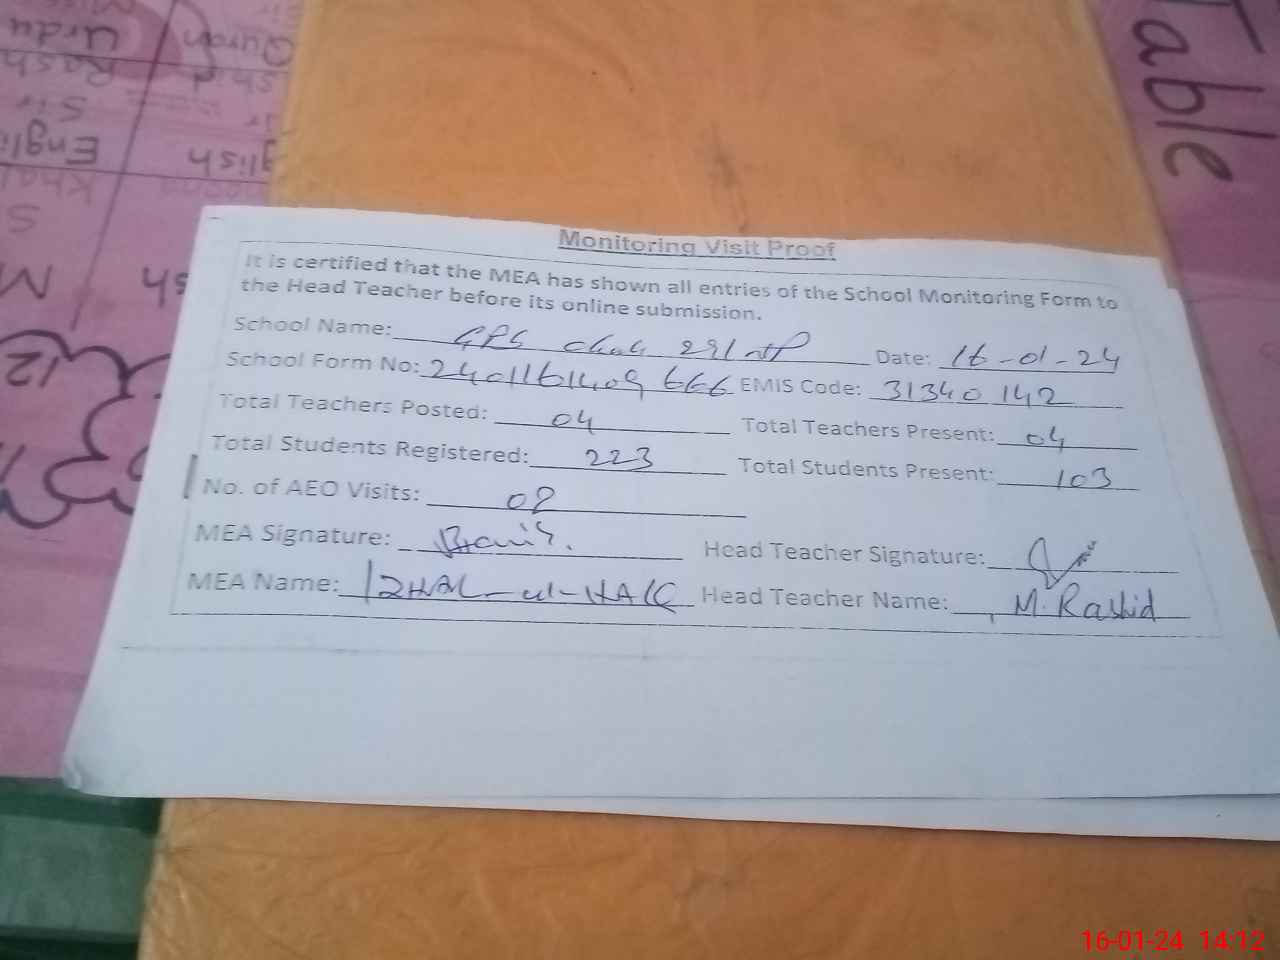 Table
Monitoring Visit Proof
It is certified that the MEA has shown all entries of the School Monitoring Form to
the Head Teacher before its online submission.
School Name: GPS Chak 291 Date: 16-01-24
School Form No: 2401161409 666 EMIS Code: 31340142
Total Teachers Posted: 04 Total Teachers Present: 04
Total Students Registered: 223 Total Students Present: 103
No. of AEO Visits: 02
MEA Signature: Head Teacher Signature:
MEA Name: Head Teacher Name: M. Rashid
Quran Urdu
Rash
Sir
glish Engli
12
16-01-24 14:12